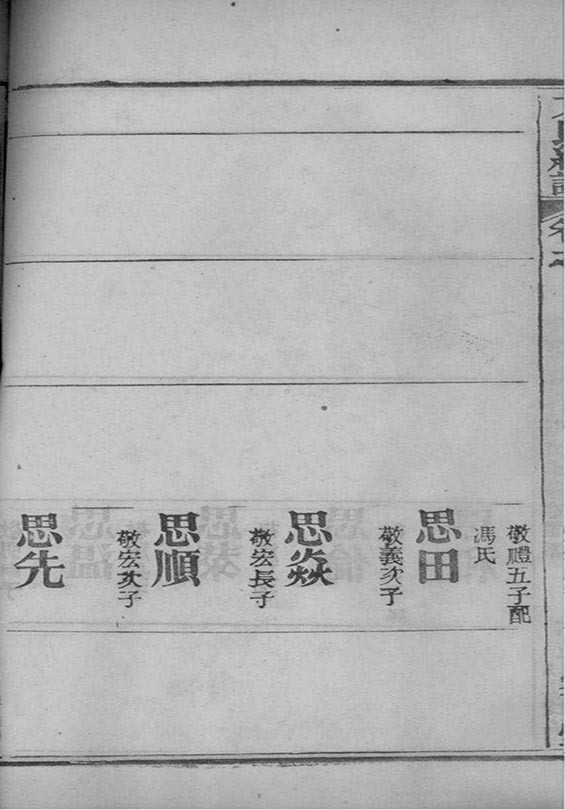 敬禮五子配
馮氏
思田
敬義次子
思焱
敬宏長子
思順
敬宏次子
思先